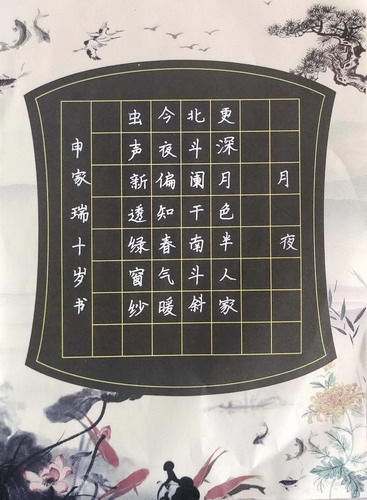 月夜
更深月色半人家
北斗阑干南斗斜
今夜偏知春气暖
虫声新透绿窗纱
申家瑞十岁书